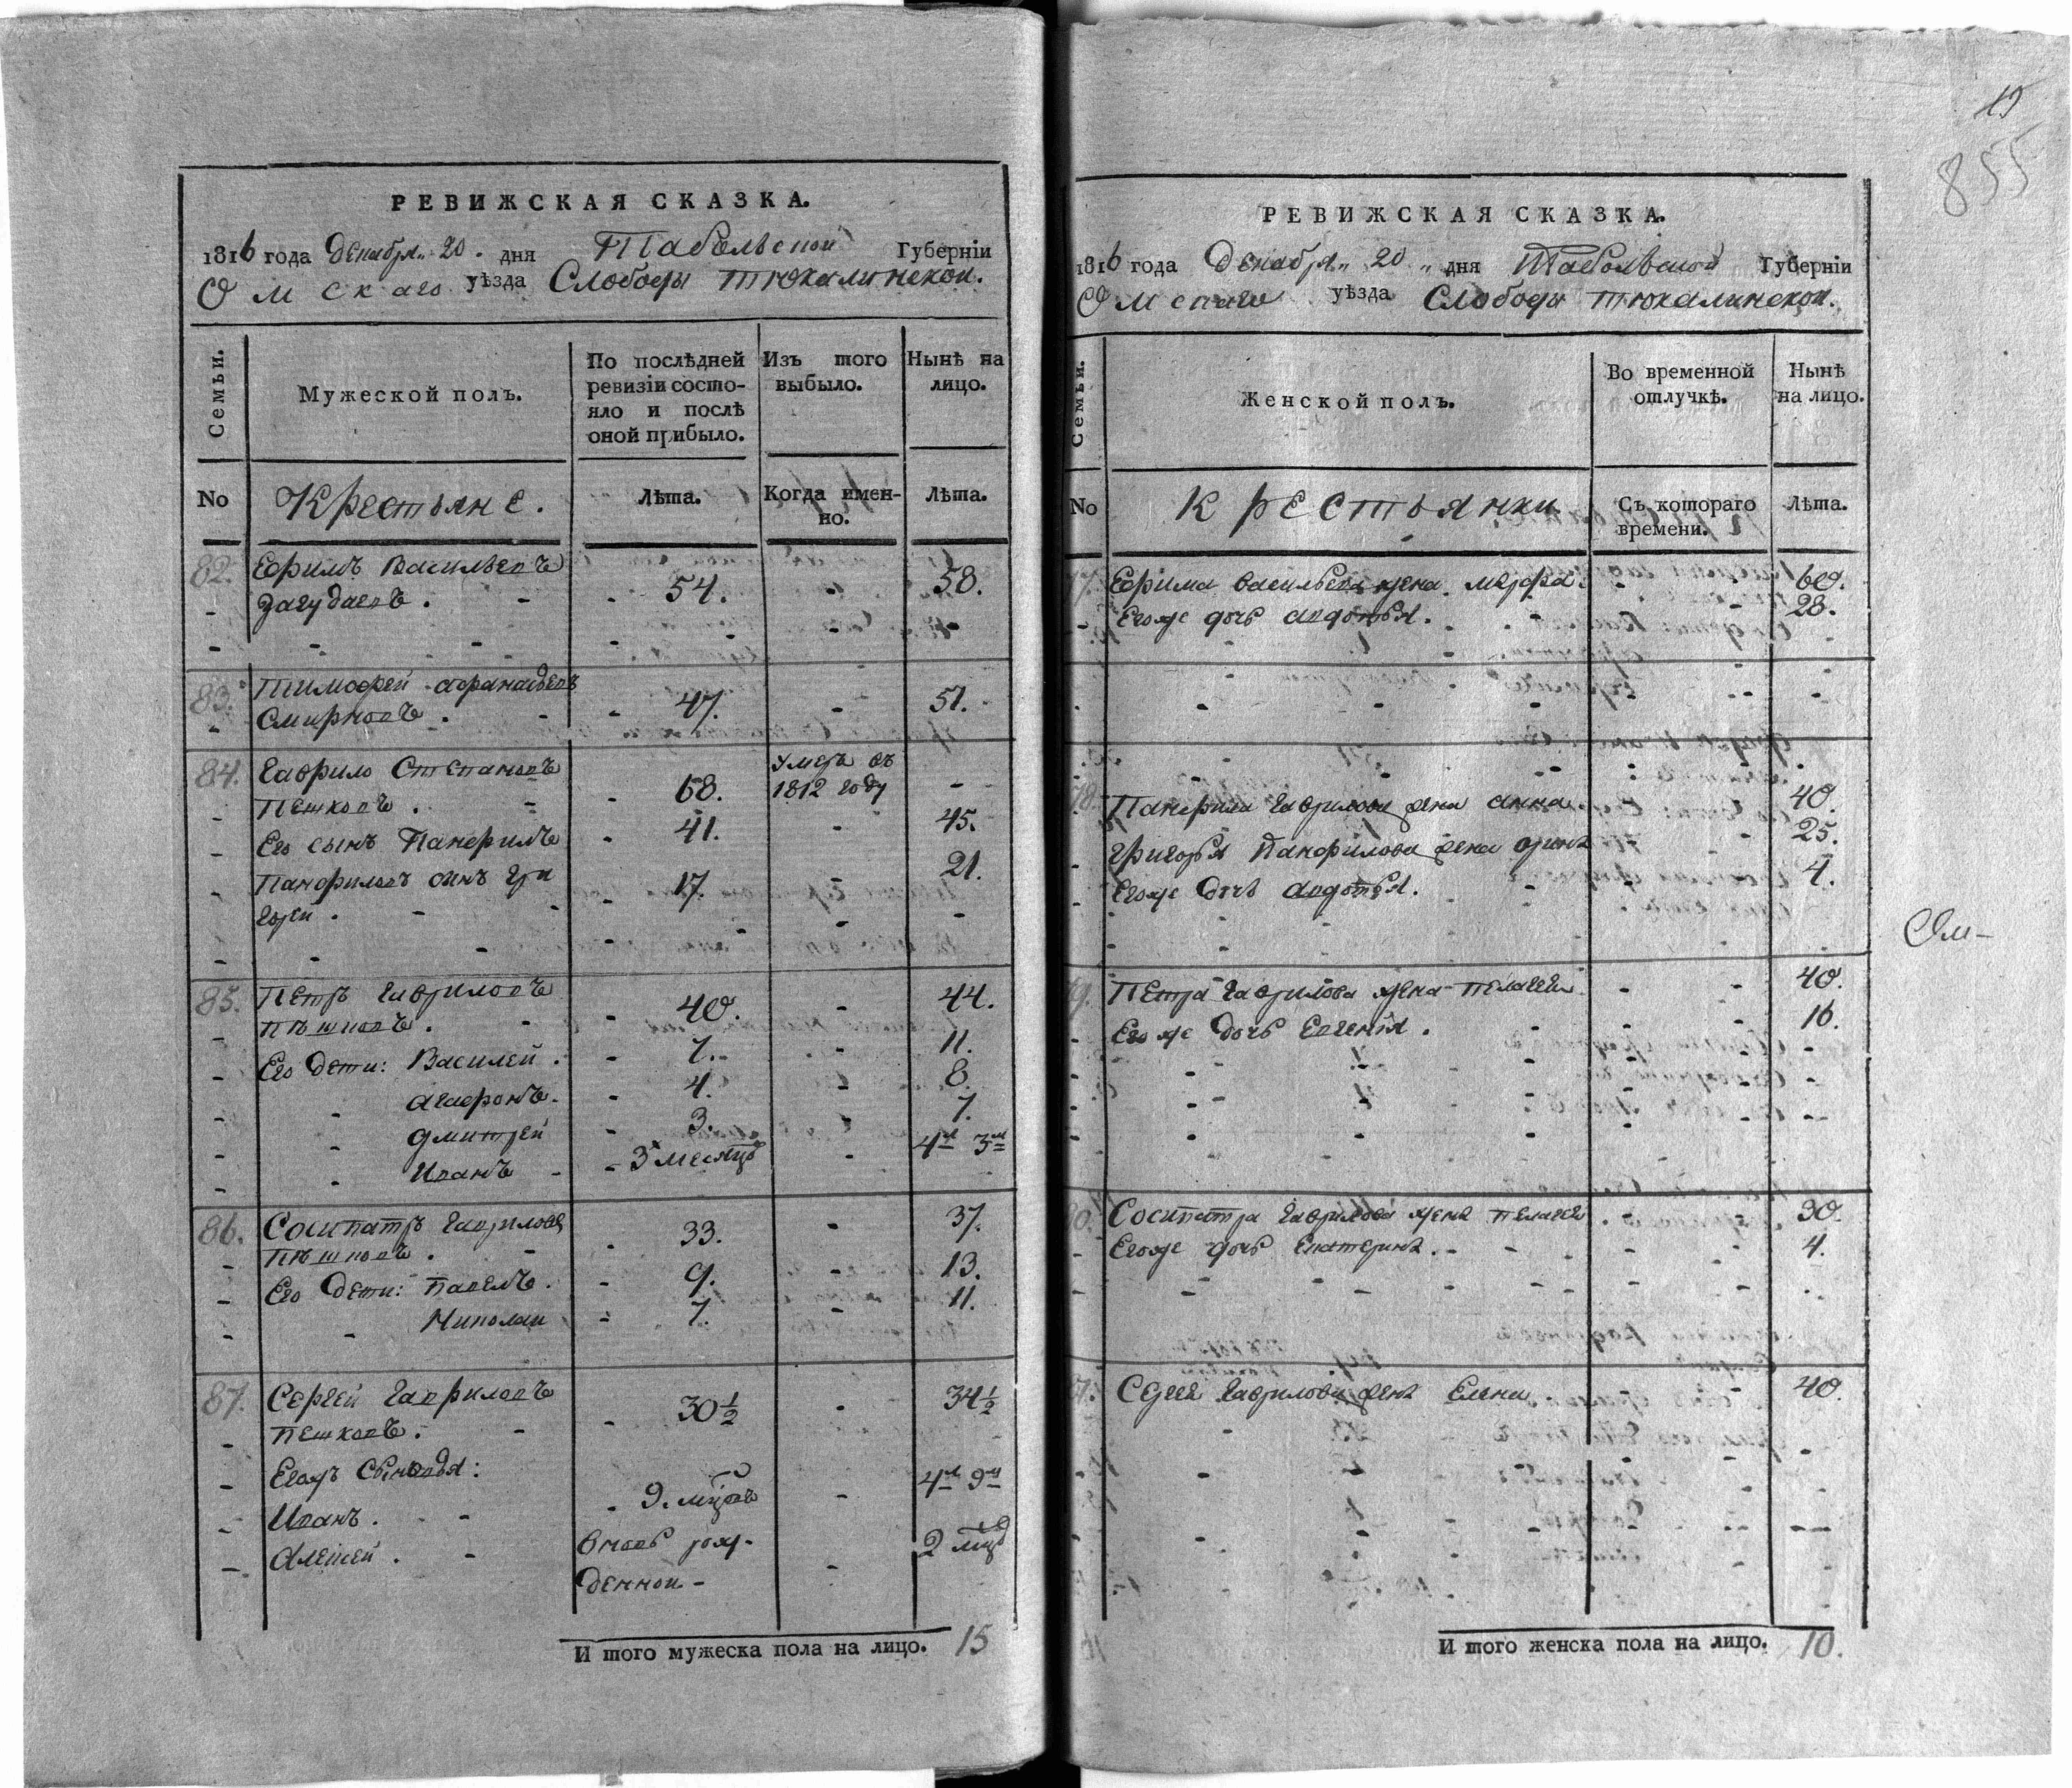 РЕВИЖСКАЯ СКАЗКА.
1816 года декабря 20. дня Табольской Губерніи
Омскаго уѣзда Слободы Тюкалинской.
Семьи.
Мужеской полъ.
По послѣдней ревизіи состо-
яло и послѣ
оной прибыло.
Изъ того выбыло.
Нынѣ на лицо.
No
Крестьяне.
Лѣта.
Когда имен-
но.
Лѣта.
82. Ефимъ Васильевъ
54. 58.
83. Тимофей Афанасьевъ
Смирновъ. 47. 51.
84. Гаврило Степановъ умеръ въ
Пешковъ. 68. 1812 году
Его сынъ Панфилъ 41. 45.
Панфиловъ сынъ Гри 17. 21.
горей.
85. Петръ Гавриловъ
Пѣшковъ. 40. 44.
Его дети: Василей. 7. 11.
Агафонъ. 4. 8.
Дмитрей 3. 7.
Иванъ 3 месяцъ 4л 3м
86. Сосипатръ Гавриловъ
Пѣшковъ. 33. 37.
Его дети: Павелъ. 9. 13.
Николаи 7. 11.
87. Сергей Гавриловъ
Пешковъ. 30½ 34½
Егожъ Сыновья:
Иванъ. 9. мцовъ 4л 9м
Алексей. вновь рож-
денной 2 мцъ
И того мужеска пола на лицо. 15
19
855
РЕВИЖСКАЯ СКАЗКА.
1816 года Декабря 20 дня Табольской Губерніи
Омскаго уѣзда Слободы Тюкалинской.
Семьи.
Женской полъ.
Во временной
отлучкѣ.
Нынѣ
на лицо.
No
Крестьянки
Съ котораго
времени.
Лѣта.
77. Ефима Васильева жена Марфа. 60.
Егоже дочь Авдотья. 28.
78. Панфила Гаврилова жена Анна. 40.
Григорья Панфилова жена Орина 25.
Егоже дочь Авдотья. 4.
79. Петра Гаврилова жена Пелагея. 40.
Егоже дочь Евгенія. 16.
80. Сосипатра Гаврилова жена Пелагея. 30.
Егоже дочь Екатерина. 4.
81. Сергея Гаврилова жена Елена. 40.
И того женска пола на лицо. 10.
Ом-